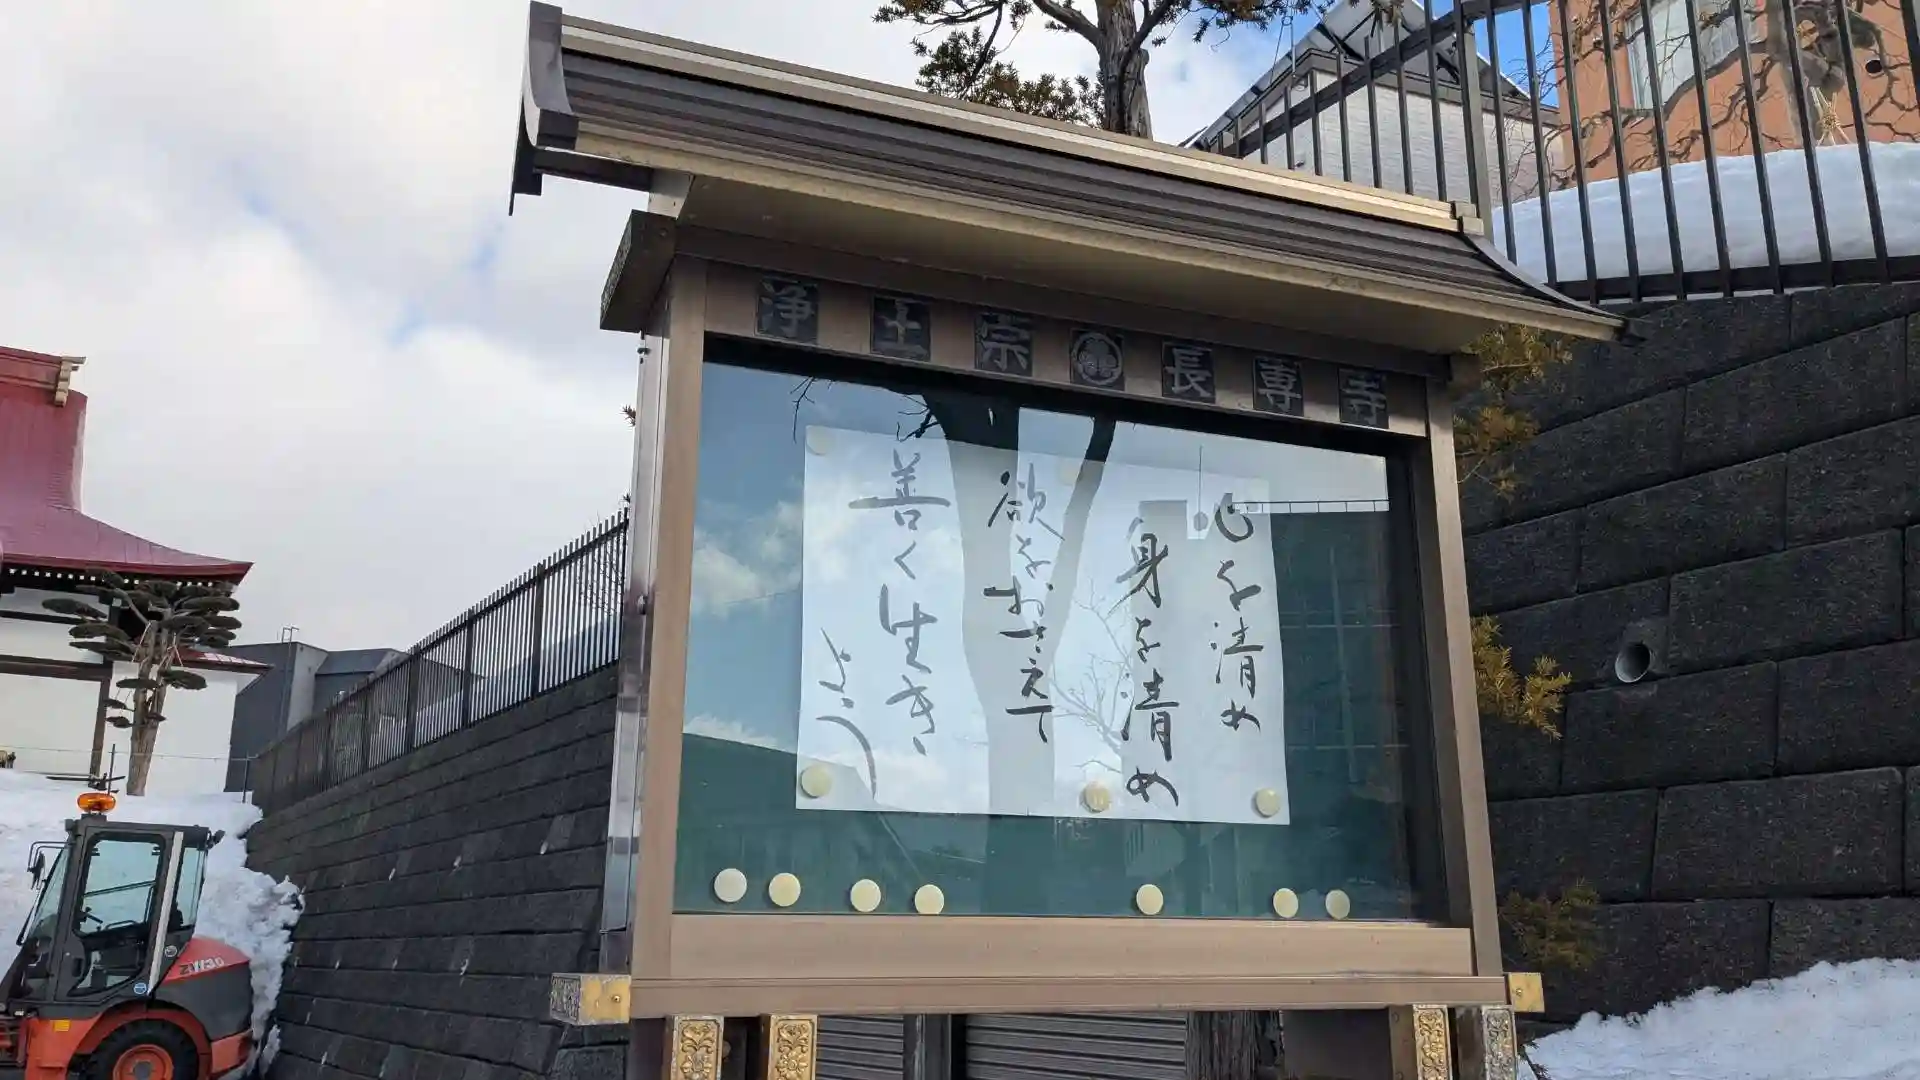 浄土宗 長専寺
心を清め
身を清め
欲をおさえて
善く生き
よう
ZW30